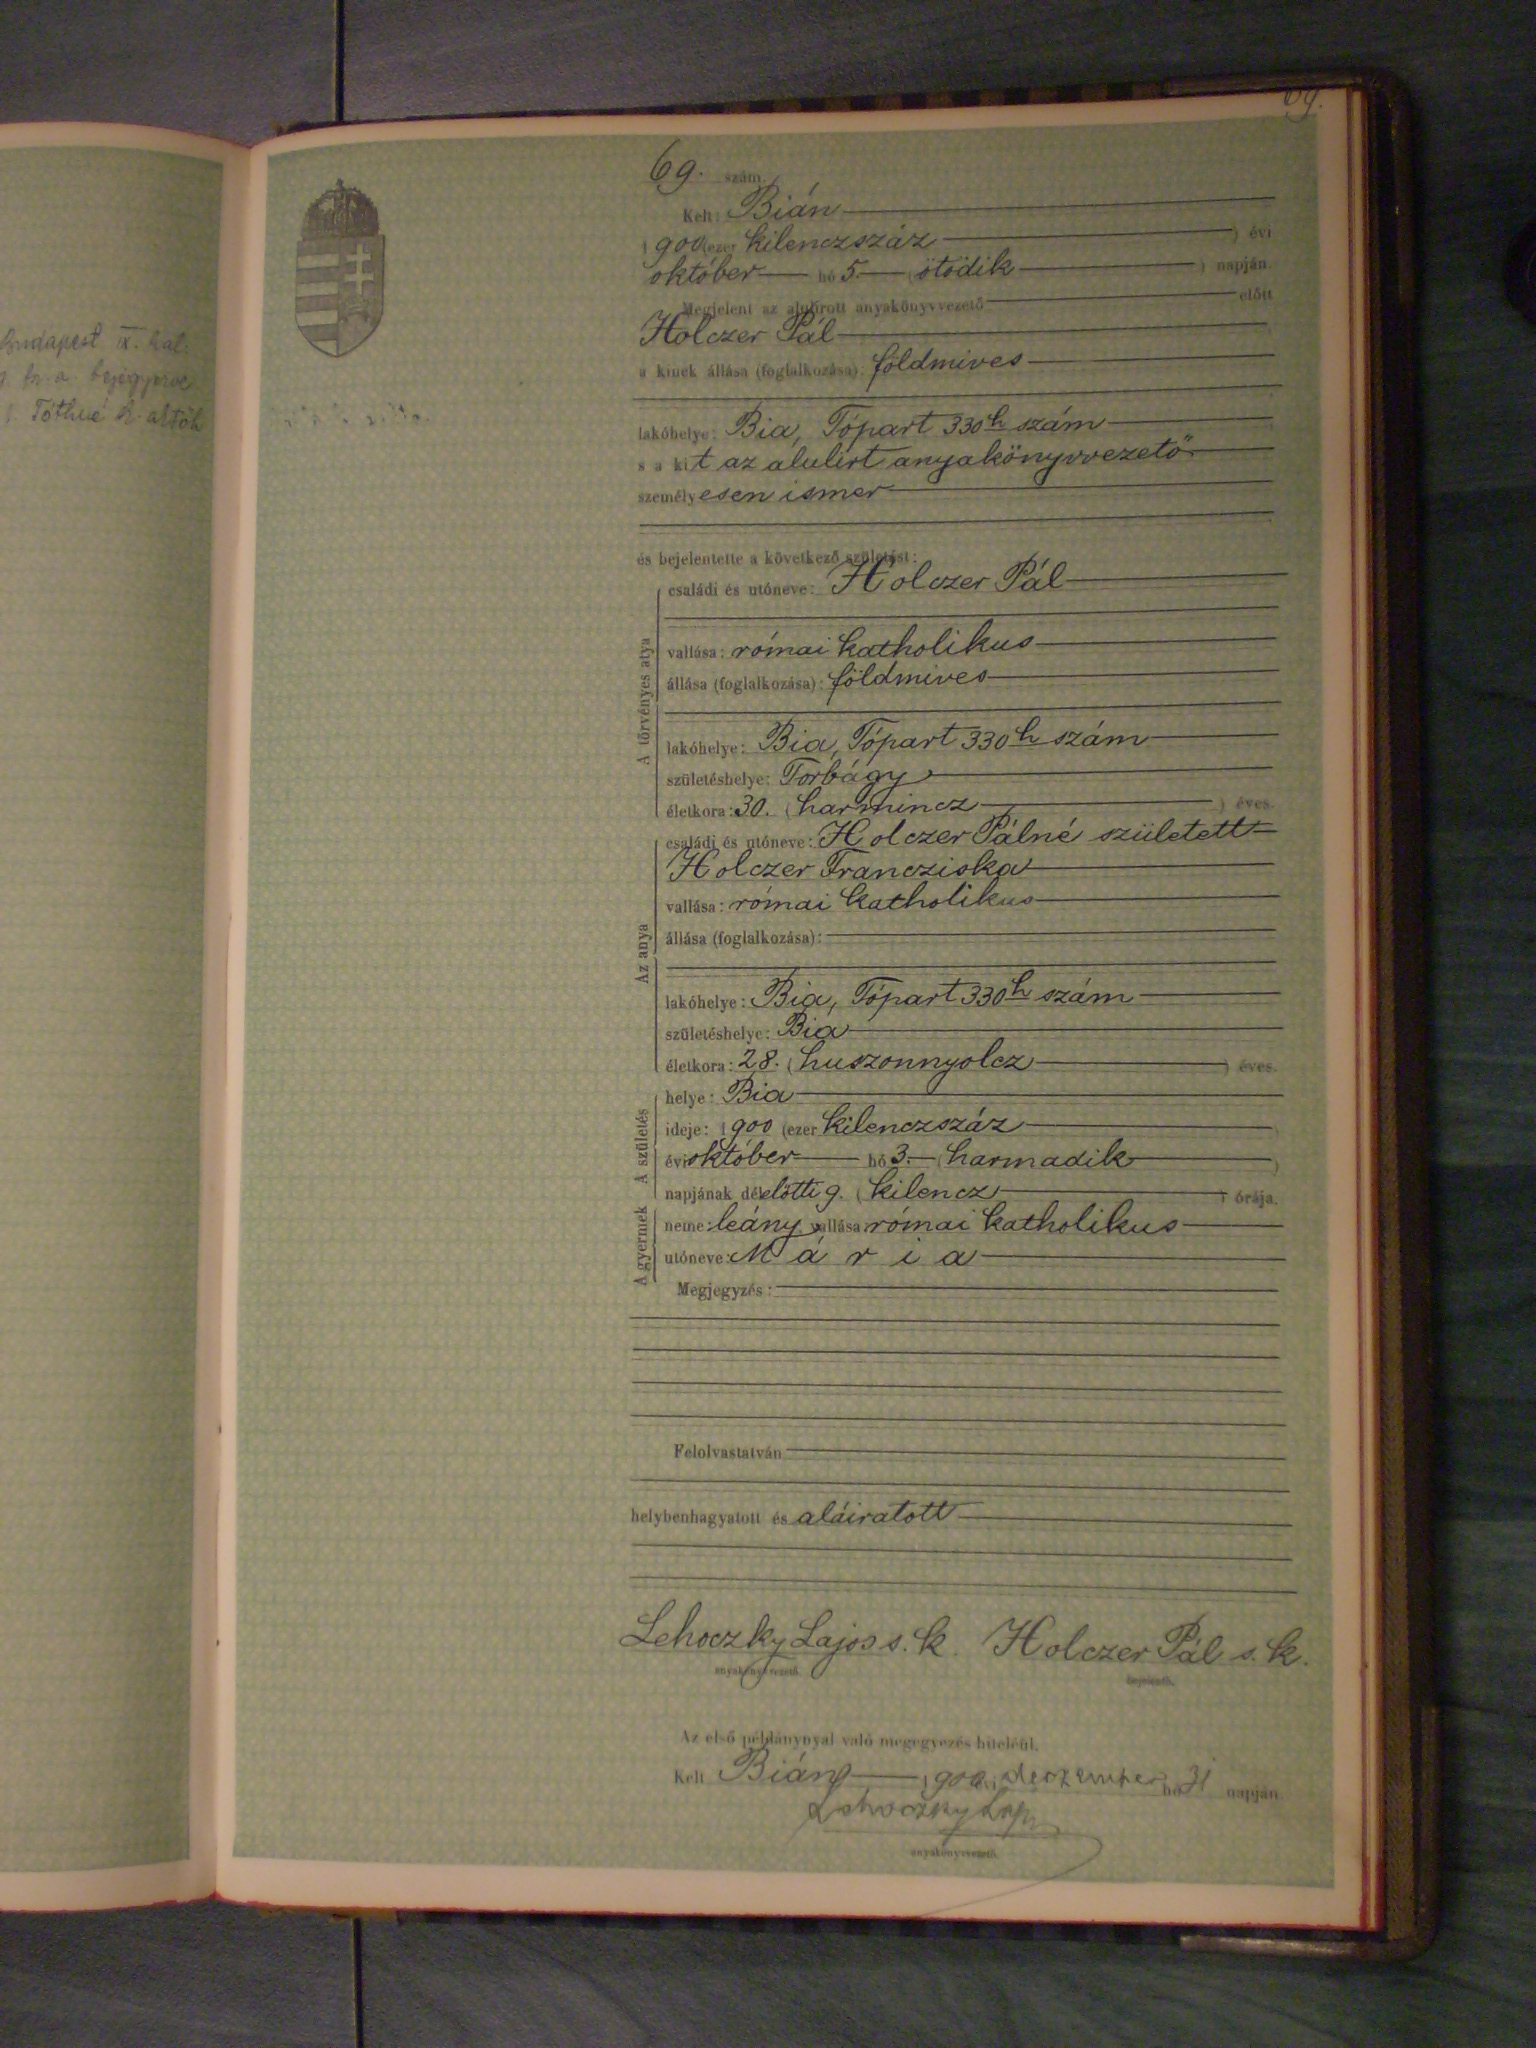 69.
Budapest IX. ker.
Tóthné
69. szám.
Kelt: Bián
1900 (ezer kilenczszáz ) évi
október hó 5. (ötödik ) napján.
Megjelent az alulírott anyakönyvvezető előtt
Holczer Pál
a kinek állása (foglalkozása): földmives
lakóhelye: Bia, Tópart 330 h szám
s a kit az alulirt anyakönyvvezető
személyesen ismer
és bejelentette a következő születést:
A törvényes atya
családi és utóneve: Holczer Pál
vallása: római katholikus
állása (foglalkozása): földmives
lakóhelye: Bia, Tópart 330 h szám
születéshelye: Torbágy
életkora: 30. (harmincz ) éves.
Az anya
családi és utóneve: Holczer Pálné született
Holczer Francziska
vallása: római katholikus
állása (foglalkozása):
lakóhelye: Bia, Tópart 330 h szám
születéshelye: Bia
életkora: 28. (huszonnyolcz ) éves.
A születés
helye: Bia
ideje: 1900 (ezer kilenczszáz )
évi október hó 3. (harmadik )
napjának délelőtti 9. (kilencz ) órája.
A gyermek
neme: leány, vallása: római katholikus
utóneve: Mária
Megjegyzés:
Felolvastatván
helybenhagyatott és aláiratott
Lehoczky Lajos s. k. Holczer Pál s. k.
anyakönyvvezető. bejelentő.
Az első példánynyal való megegyezés hiteléül.
Kelt Bián 1900 évi deczember hó 31 napján
Lehoczky Lajos
anyakönyvvezető.